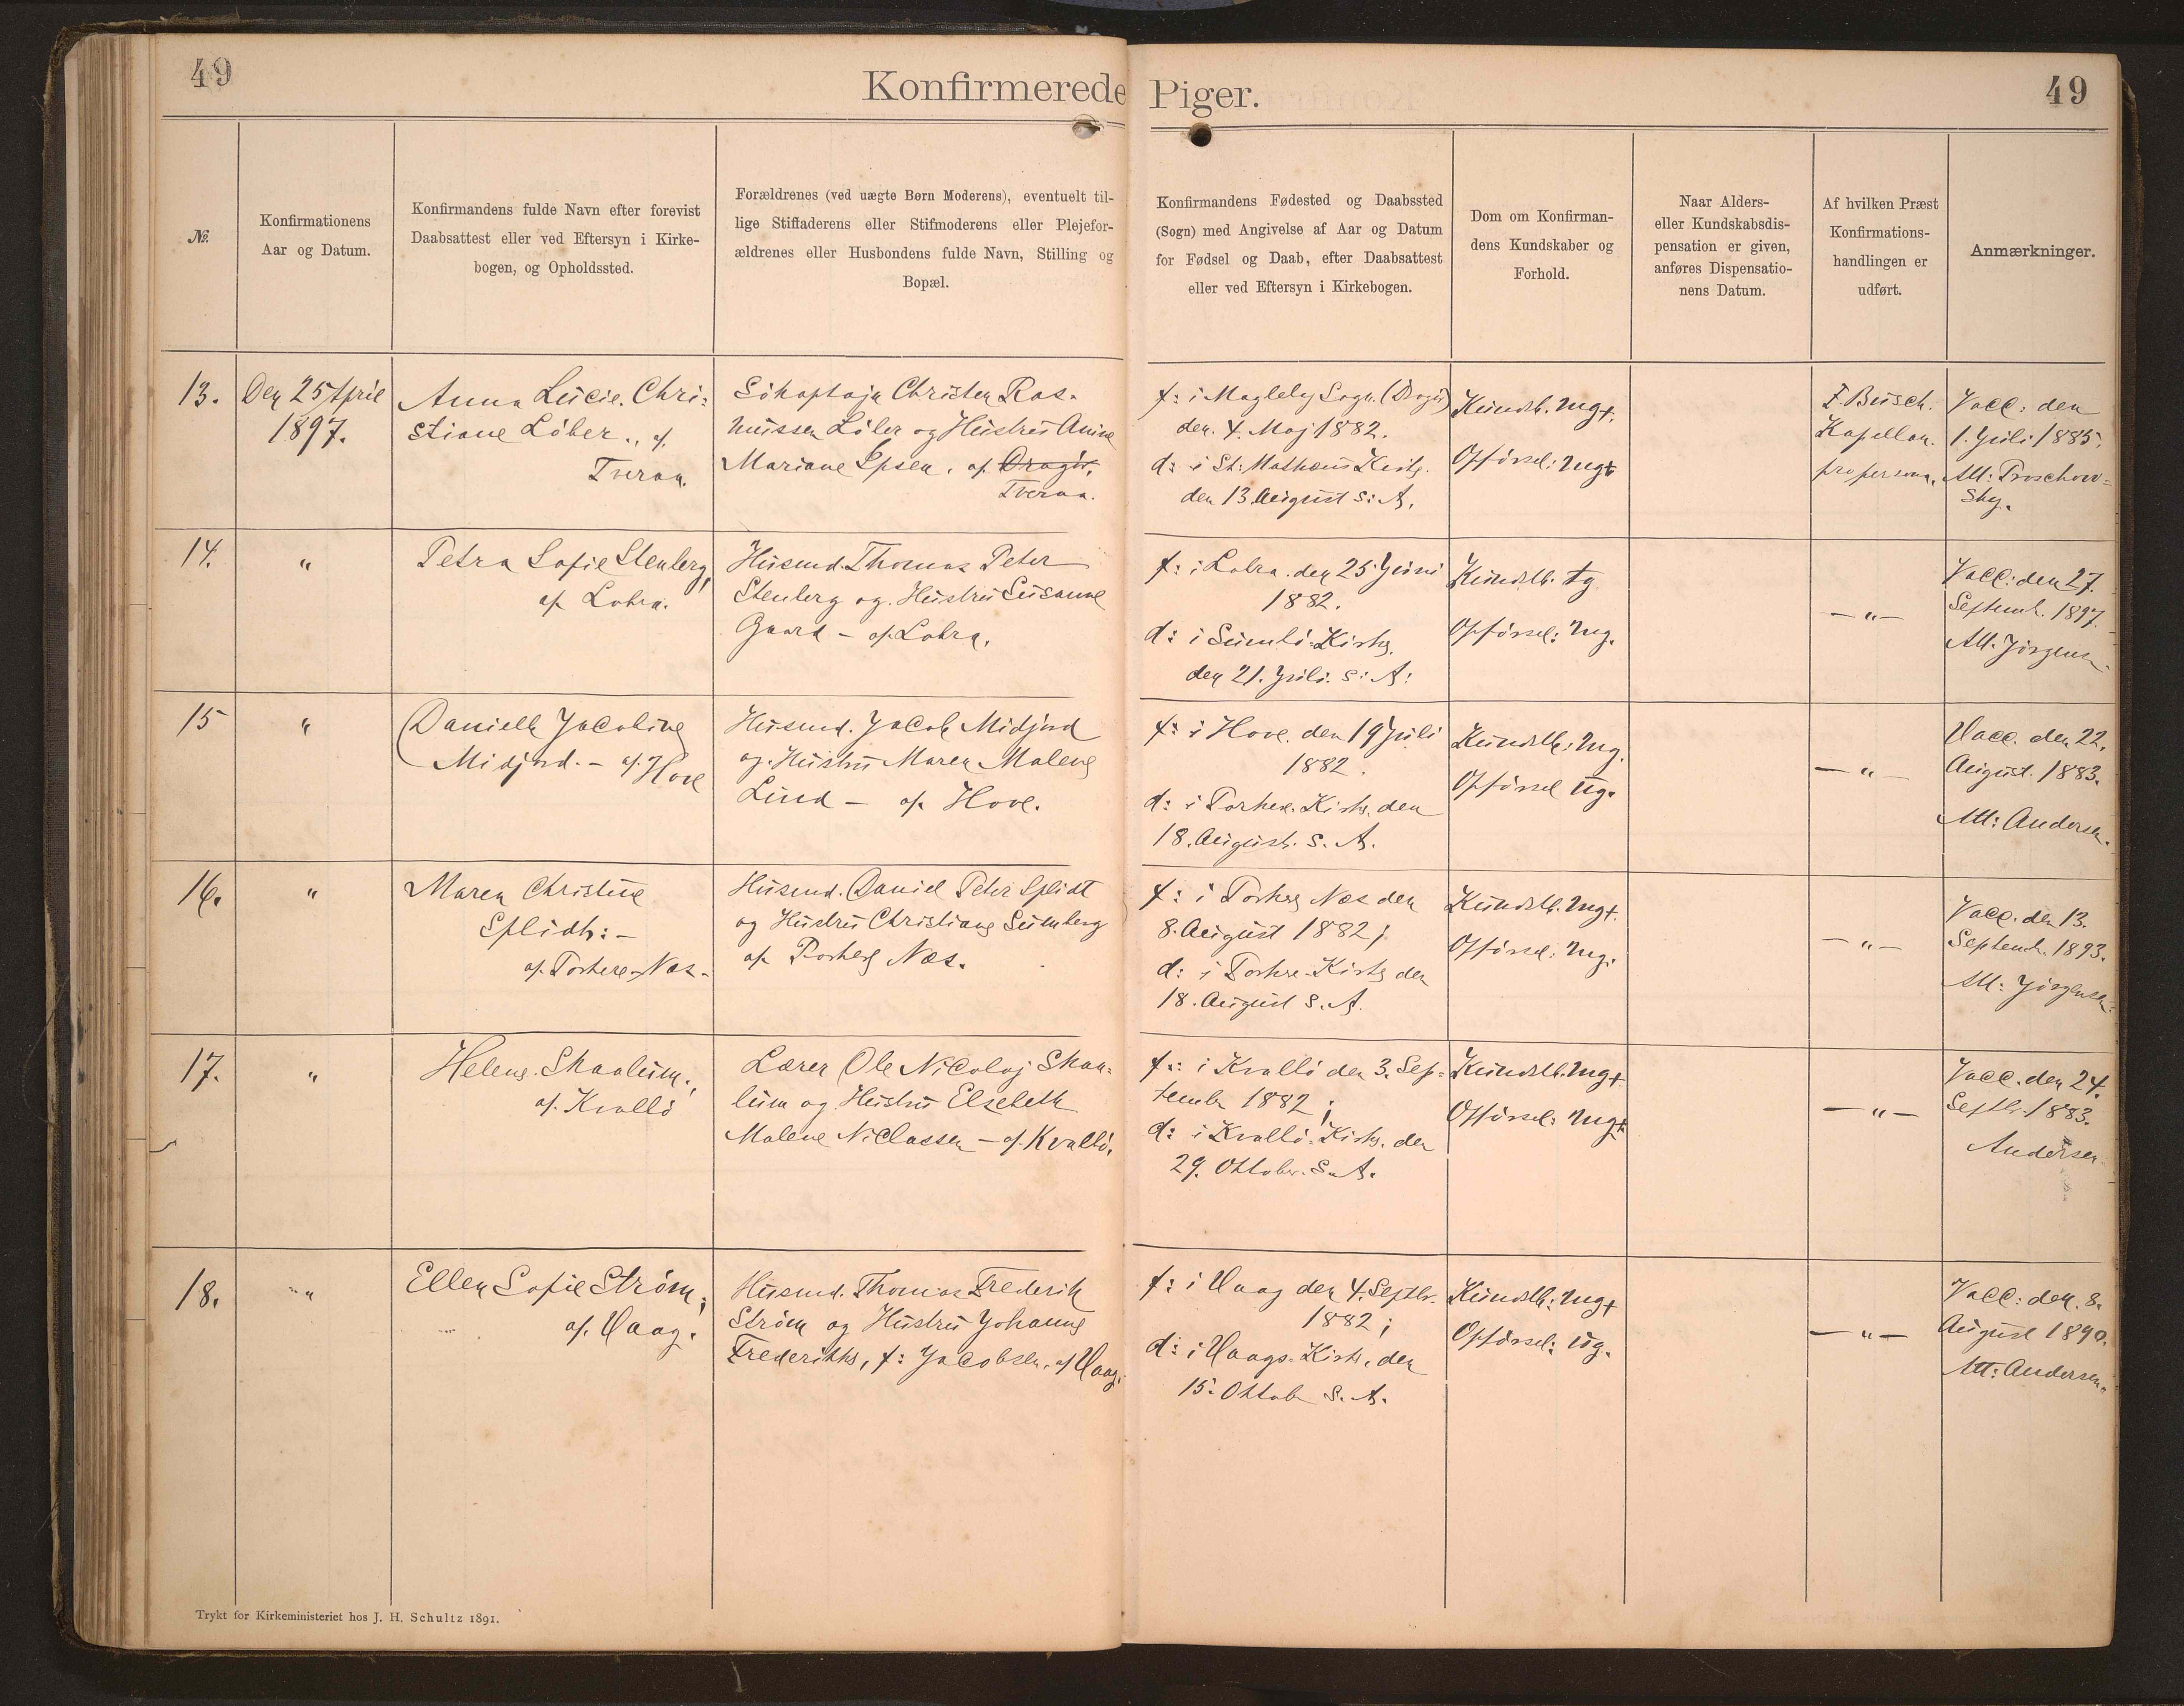 49
Konfirmerede
Piger.
49
№.
Konfirmationens
Aar og Datum.
Konfirmandens fulde Navn efter forevist
Daabsattest eller ved Eftersyn i Kirke-
bogen, og Opholdssted.
Forældrenes (ved uægte Børn Moderens), eventuelt til-
lige Stiffaderens eller Stifmoderens eller Plejefor-
ældrenes eller Husbondens fulde Navn, Stilling og
Bopæl.
Konfirmandens Fødested og Daabssted
(Sogn) med Angivelse af Aar og Datum
for Fødsel og Daab, efter Daabsattest
eller ved Eftersyn i Kirkebogen.
Dom om Konfirman-
dens Kundskaber og
Forhold.
Naar Alders-
eller Kundskabsdis-
pensation er given,
anføres Dispensatio-
nens Datum.
Af hvilken Præst
Konfirmations-
handlingen er
udført.
Anmærkninger.
13.
Den 25 April
1897.
Anna Lucie Chri-
stiane Löber., af
Tveraa.
Sökaptajn Christen Ras-
mussen Löber og Hustru Anine
Mariane Ipsen, af Dragör.
Tveraa.
f: i Magleby Sogn. (Dragö)
den 4. Maj 1882.
d: i St: Mathæus Kirke.
den 13 August s: A.
Kundsk. mg+.
Opførsel: mg+
F. Busch.
Kapellan.
pro persona.
Vacc: den
1. Juli 1885.
Att: Proschow-
sky.
14.
"
Petra Sofie Stenberg,
af Lobra.
Husmd. Thomas Peter
Stenberg og Hustru Susanne
Gaard - af Lobra.
f: i Lobra den 25 Juni
1882.
d: i Sumbö-Kirke.
den 21. Juli. s: A:
Kundsk. tg
Opförsel: mg.
— " —
Vacc: den 27.
Septemb. 1897.
Att. Jörgensen.
15
"
Danielle Jacobine
Midjord. - af Hove
Husmd. Jacob Midjord
og Hustru Maren Malene
Lind - af Hove.
f: i Hove. den 19 Juli
1882.
d: i Porkere-Kirke. den
18. August. s. A.
Kundsk: mg.
Opförsel ug.
— " —
Vacc. den 22.
August. 1883.
Att: Andersen.
16.
"
Maren Christine
Splidt: -
af Porkere-Næs.
Husmd. Daniel Peter Splidt
og Hustru Christiane Sumberg
af Porkere Næs.
f: i Porkere Næs den
8. August 1882;
d: i Porkere-Kirke den
18. August s. A.
Kundsk. mg+.
Opförsel: mg.
— " —
Vacc. den 13.
Septemb. 1893.
Att: Jörgensen.
17.
"
Helene Skaalum.,
af Kvalbö
Lærer Ole Nicolaj Skaa-
lum og Hustru Elsebeth
Malene Niclassen - af Kvalbö.
f: i Kvalbö den 3. Sep-
tember 1882;
d: i Kvalbö-Kirke. den
29. Oktober. s. A.
Kundsk. mg+
Opförsel: mg+
— " —
Vacc. den 24.
Septb. 1883.
Andersen
18.
"
Ellen Sofie Strøm;
af Vaag.
Husmd. Thomas Frederik
Strøm og Hustru Johanne
Frederikke, f: Jacobsen. af Vaag.
f: i Vaag den 4. Septbr.
1882;
d: i Vaags-Kirke, den
15: Oktob s. A.
Kundsk: mg+
Opförsel: ug.
— " —
Vacc: den 8.
August 1890.
Att: Andersen.
Trykt for Kirkeministeriet hos J. H. Schultz 1891.